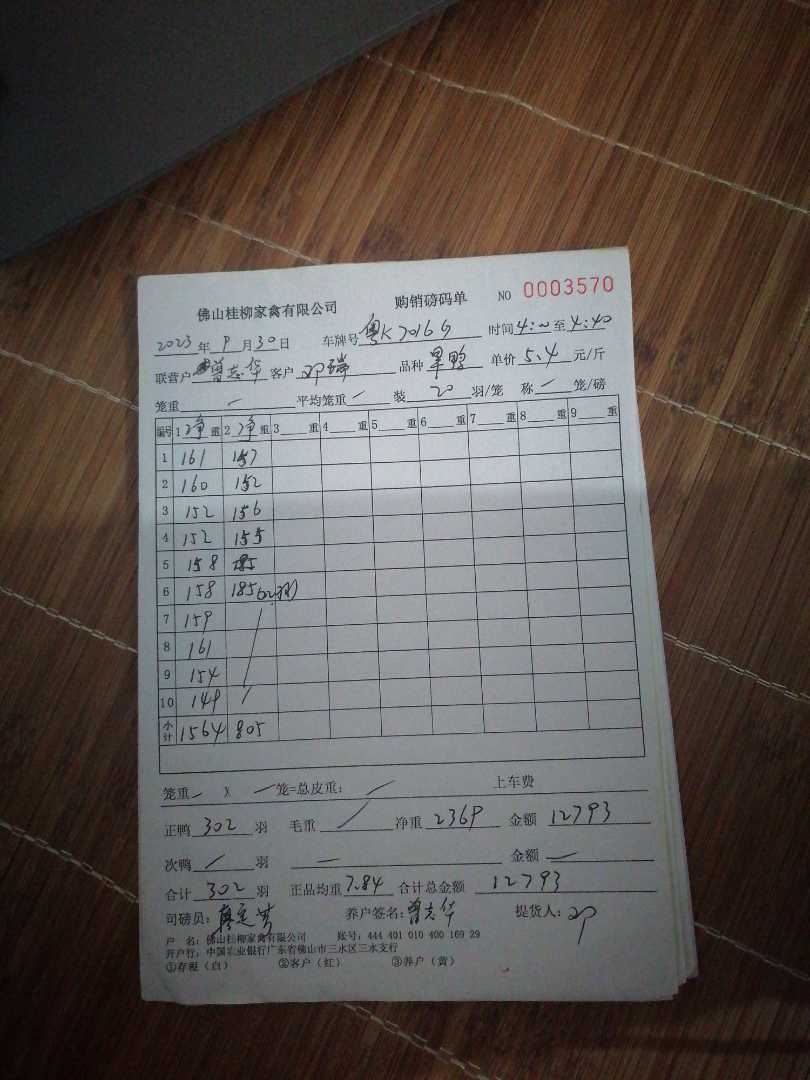 佛山桂柳家禽有限公司 购销磅码单 NO 0003570
2023年9月30日 车牌号 粤K7016G 时间4:00至4:40
联营户 曾志华 客户 邓瑞 品种 单价5.4元/斤
笼重 — 平均笼重 — 装 20 羽/笼 称 — 笼/磅
编号 1净重 2净重 3重 4重 5重 6重 7重 8重 9重
1 161 157
2 160 152
3 152 156
4 152 155
5 158
6 158 185 (22羽)
7 159
8 161
9 154
10 149
小计 1564 805
笼重 — X — 笼=总皮重: 上车费
正鸭 302 羽 毛重 净重 2369 金额 12793
次鸭 羽 — 金额 —
合计 302 羽 正品均重 7.84 合计总金额 12793
司磅员: 养户签名: 曾志华 提货人: 邓
户 名: 佛山桂柳家禽有限公司 账号: 444 401 010 400 169 29
开户行: 中国农业银行广东省佛山市三水区三水支行
①存根(白) ②客户(红) ③养户(黄)